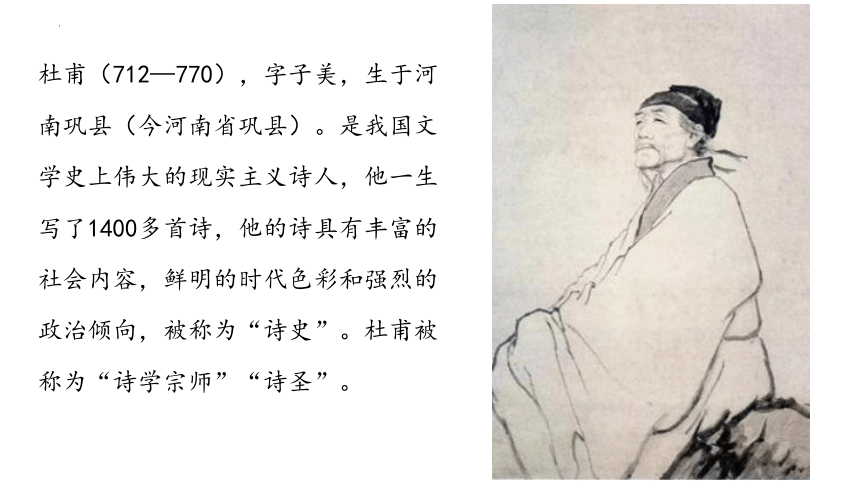 杜甫（712—770），字子美，生于河
南巩县（今河南省巩县）。是我国文
学史上伟大的现实主义诗人，他一生
写了1400多首诗，他的诗具有丰富的
社会内容，鲜明的时代色彩和强烈的
政治倾向，被称为“诗史”。杜甫被
称为“诗学宗师”“诗圣”。